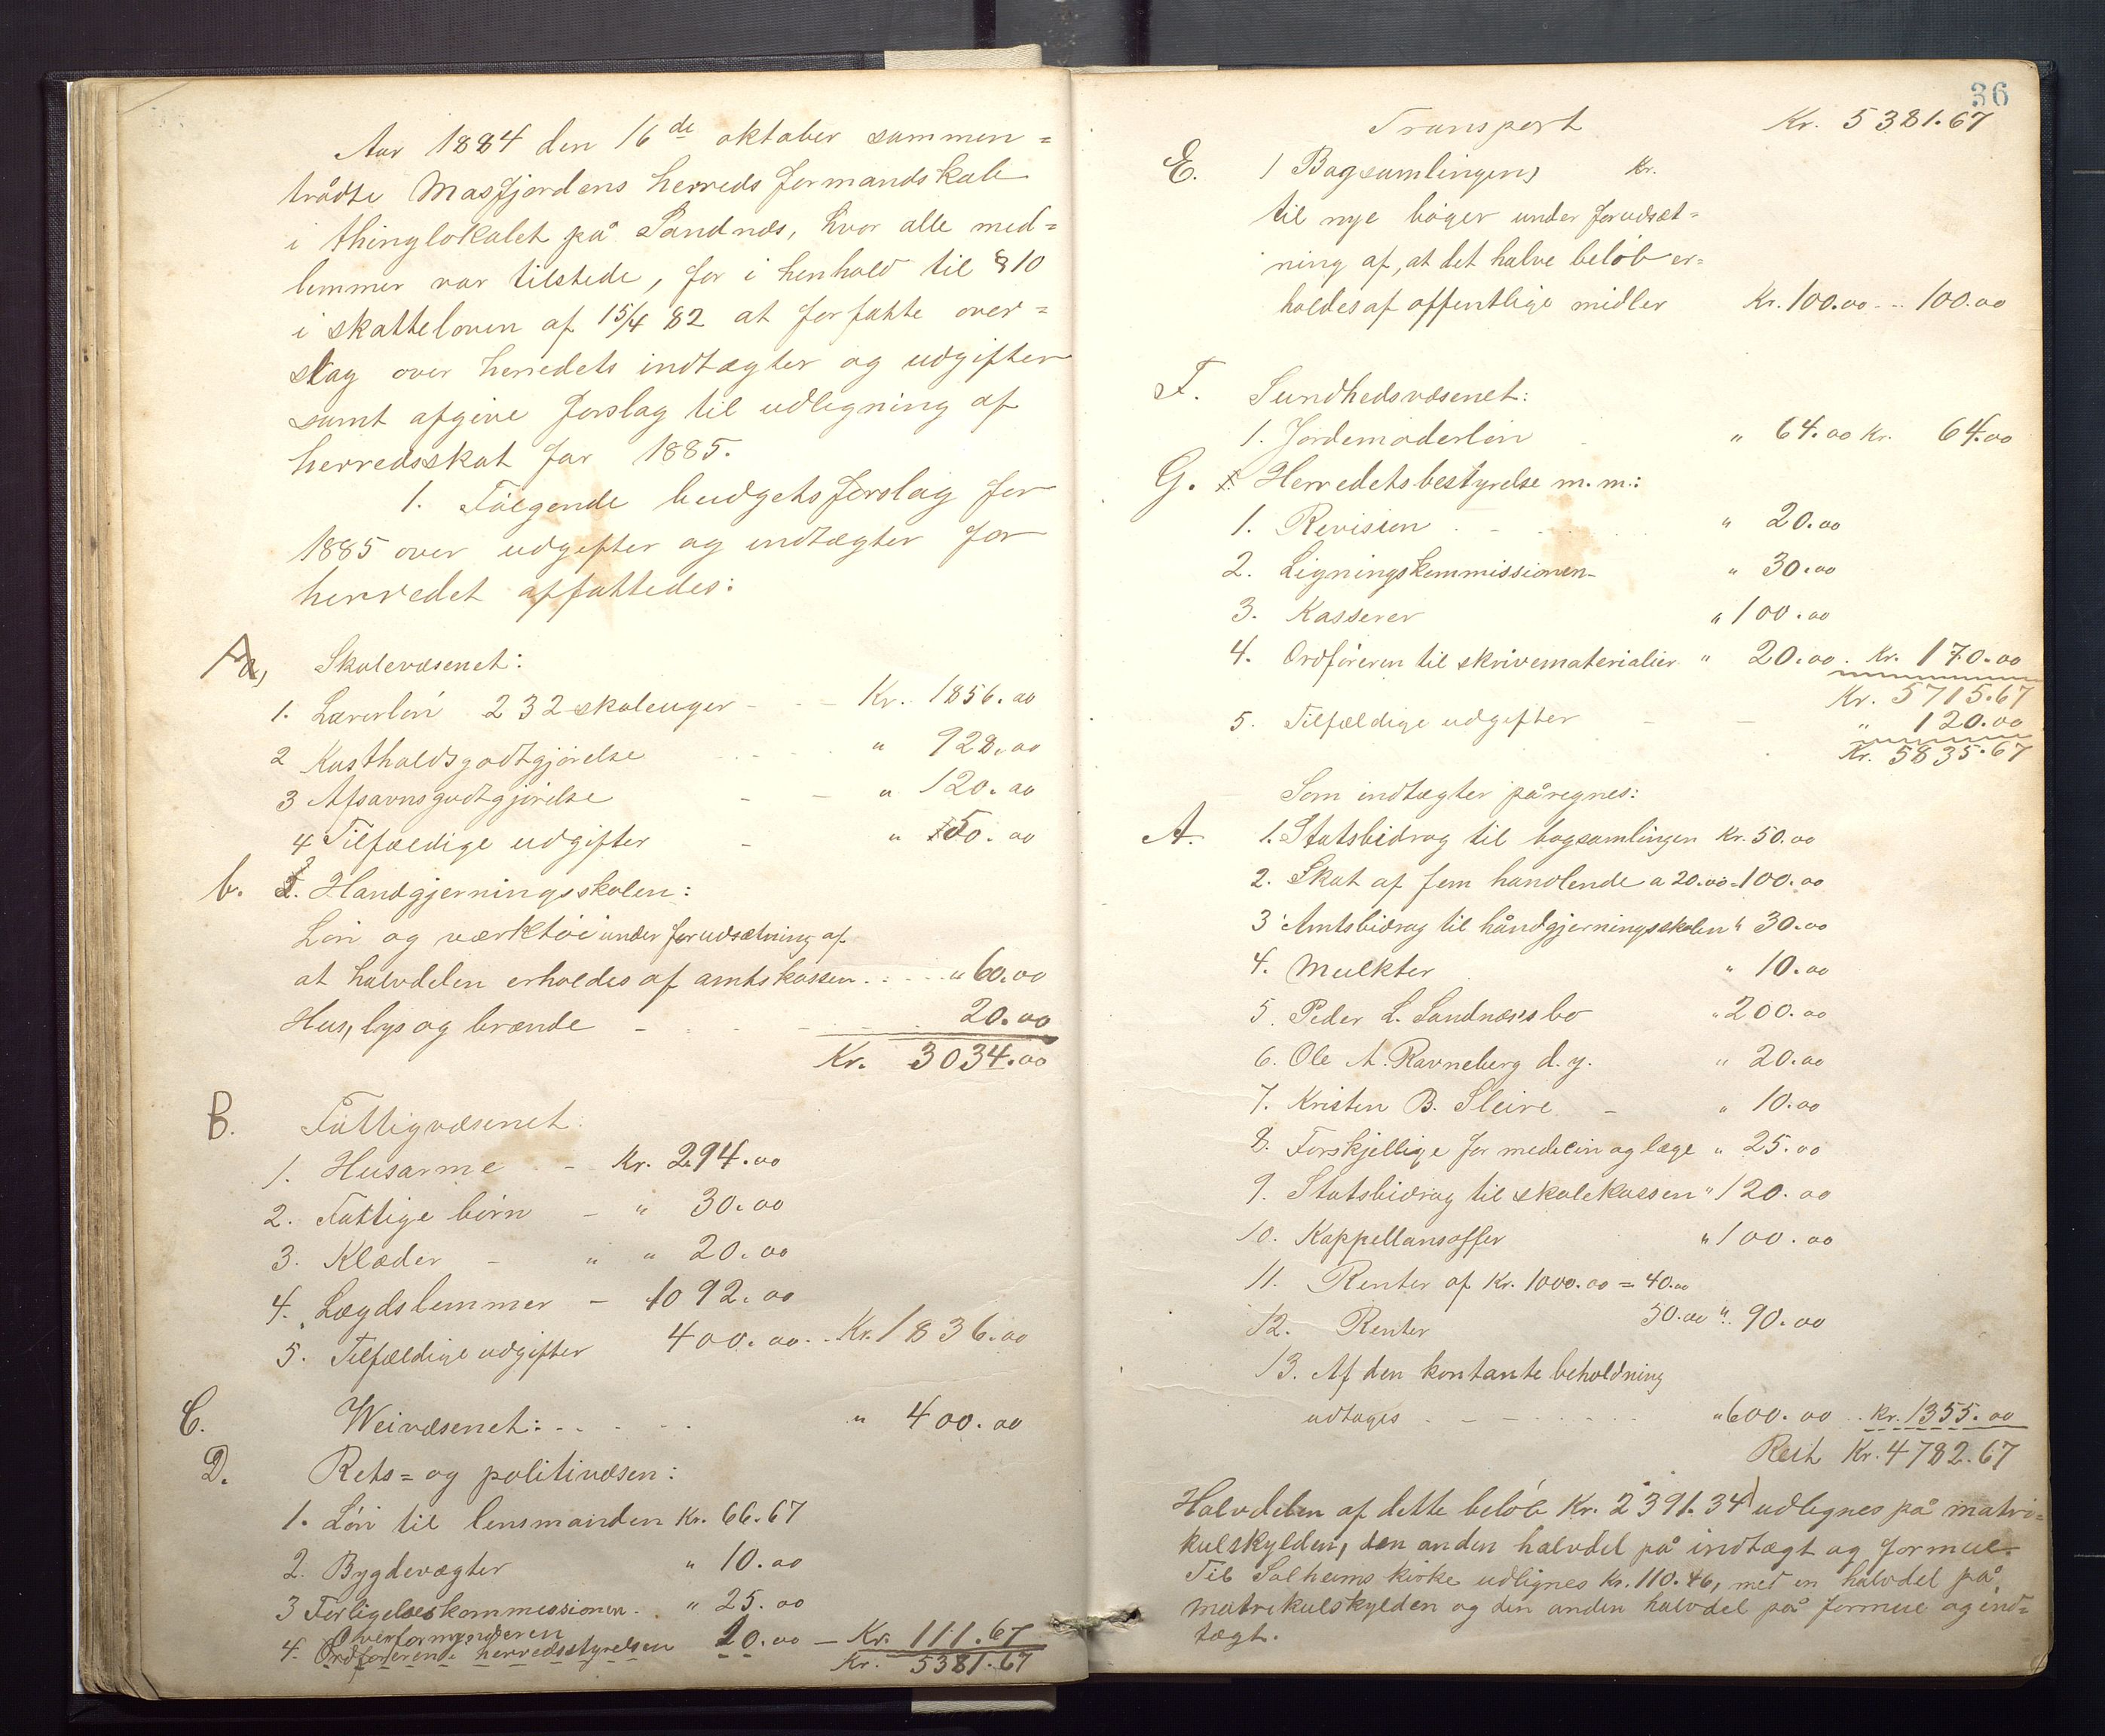 Aar 1884 den 16de oktober sammen=
trådte Masfjordens herreds formandskab
i thinglokalet på Sandnæs, hvor alle med=
lemmer var tilstede, for i henhold til § 10
i skatteloven af 15/4 82 at forfatte over=
slag over herredets indtægter og udgifter
samt afgive forslag til udligning af
herredsskat for 1885.
1. Følgende budgetsforslag for
1885 over udgifter og indtægter for
herredet affattedes:
A a, Skolevæsenet:
1. Lærerløn 232 skoleuger - - - Kr. 1856.00
2 Kostholdsgodtgjørelse - - - " 928.00
3 Afsavnsgodtgjørelse - - " 120.00
4 Tilfældige udgifter - " 50.00
b. Håndgjerningsskolen:
Løn og værktøi under forudsætning af
at halvdelen erholdes af amtskassen . . . " 60.00
Hus, lys og brænde - - - 20.00
Kr. 3034.00
B. Fattigvæsenet:
1. Husarme - Kr. 294.00
2. Fattige børn - " 30.00
3. Klæder - " " 20.00
4. Lægdslemmer - 1092.00
5. Tilfældige udgifter 400.00 . . Kr. 1836.00
C. Weivæsenet: - - - - " 400.00
D. Rets= og politivæsen:
1. Løn til lensmanden Kr. 66.67
2. Bygdevægter " 10.00
3 Forligelseskommissionen . . " 25.00
Overformynderen
4. Ordføreren i herredsstyrelsen 10.00 - Kr. 111.67
Kr. 5381.67
36
Transport Kr. 5381.67
E. 1 Bogsamlingen, Kr.
til nye bøger under forudsæt=
ning af, at det halve beløb er=
holdes af offentlige midler Kr. 100.00 - - 100.00
F. Sundhedsvæsenet:
1. Jordemoderløn " 64.00 Kr. 64.00
G. Herredetsbestyrelse m.m.:
1. Revision - - - " 20.00
2. Ligningskommissionen - " 30.00
3. Kasserer " 100.00
4. Ordføreren til skrivematerialier " 20.00 . Kr. 170.00
Kr. 5715.67
5. Tilfældige udgifter - " 120.00
Kr. 5835.67
Som indtægter påregnes:
A. 1. Statsbidrag til bogsamlingen Kr. 50.00
2. Skat af fem handlende a 20.00 = 100.00
3 Amtsbidrag til håndgjerningsskolen " 30.00
4. Mulkter " 10.00
5. Peder L. Sandnæs's bo " 200.00
6. Ole A. Ravneberg d.y. " 20.00
7. Kristen B. Sleire - " 10.00
8. Forskjellige for medicin og læge " 25.00
9. Statsbidrag til skolekassen " 120.00
10. Kappellansoffer " 100.00
11. Renter af Kr. 1000.00 = 40.00
12. Renter 50.00 " 90.00
13. Af den kontante beholdning
udtages - - - - " 600.00 . . Kr. 1355.00
Rest Kr. 4782.67
Halvdelen af dette beløb Kr. 2391.34 udlignes på matri=
kulskylden, den anden halvdel på indtægt og formue.
Til Solheims kirke udlignes Kr. 110.46, med en halvdel på
matrikulskylden og den anden halvdel på formue og ind=
tægt.